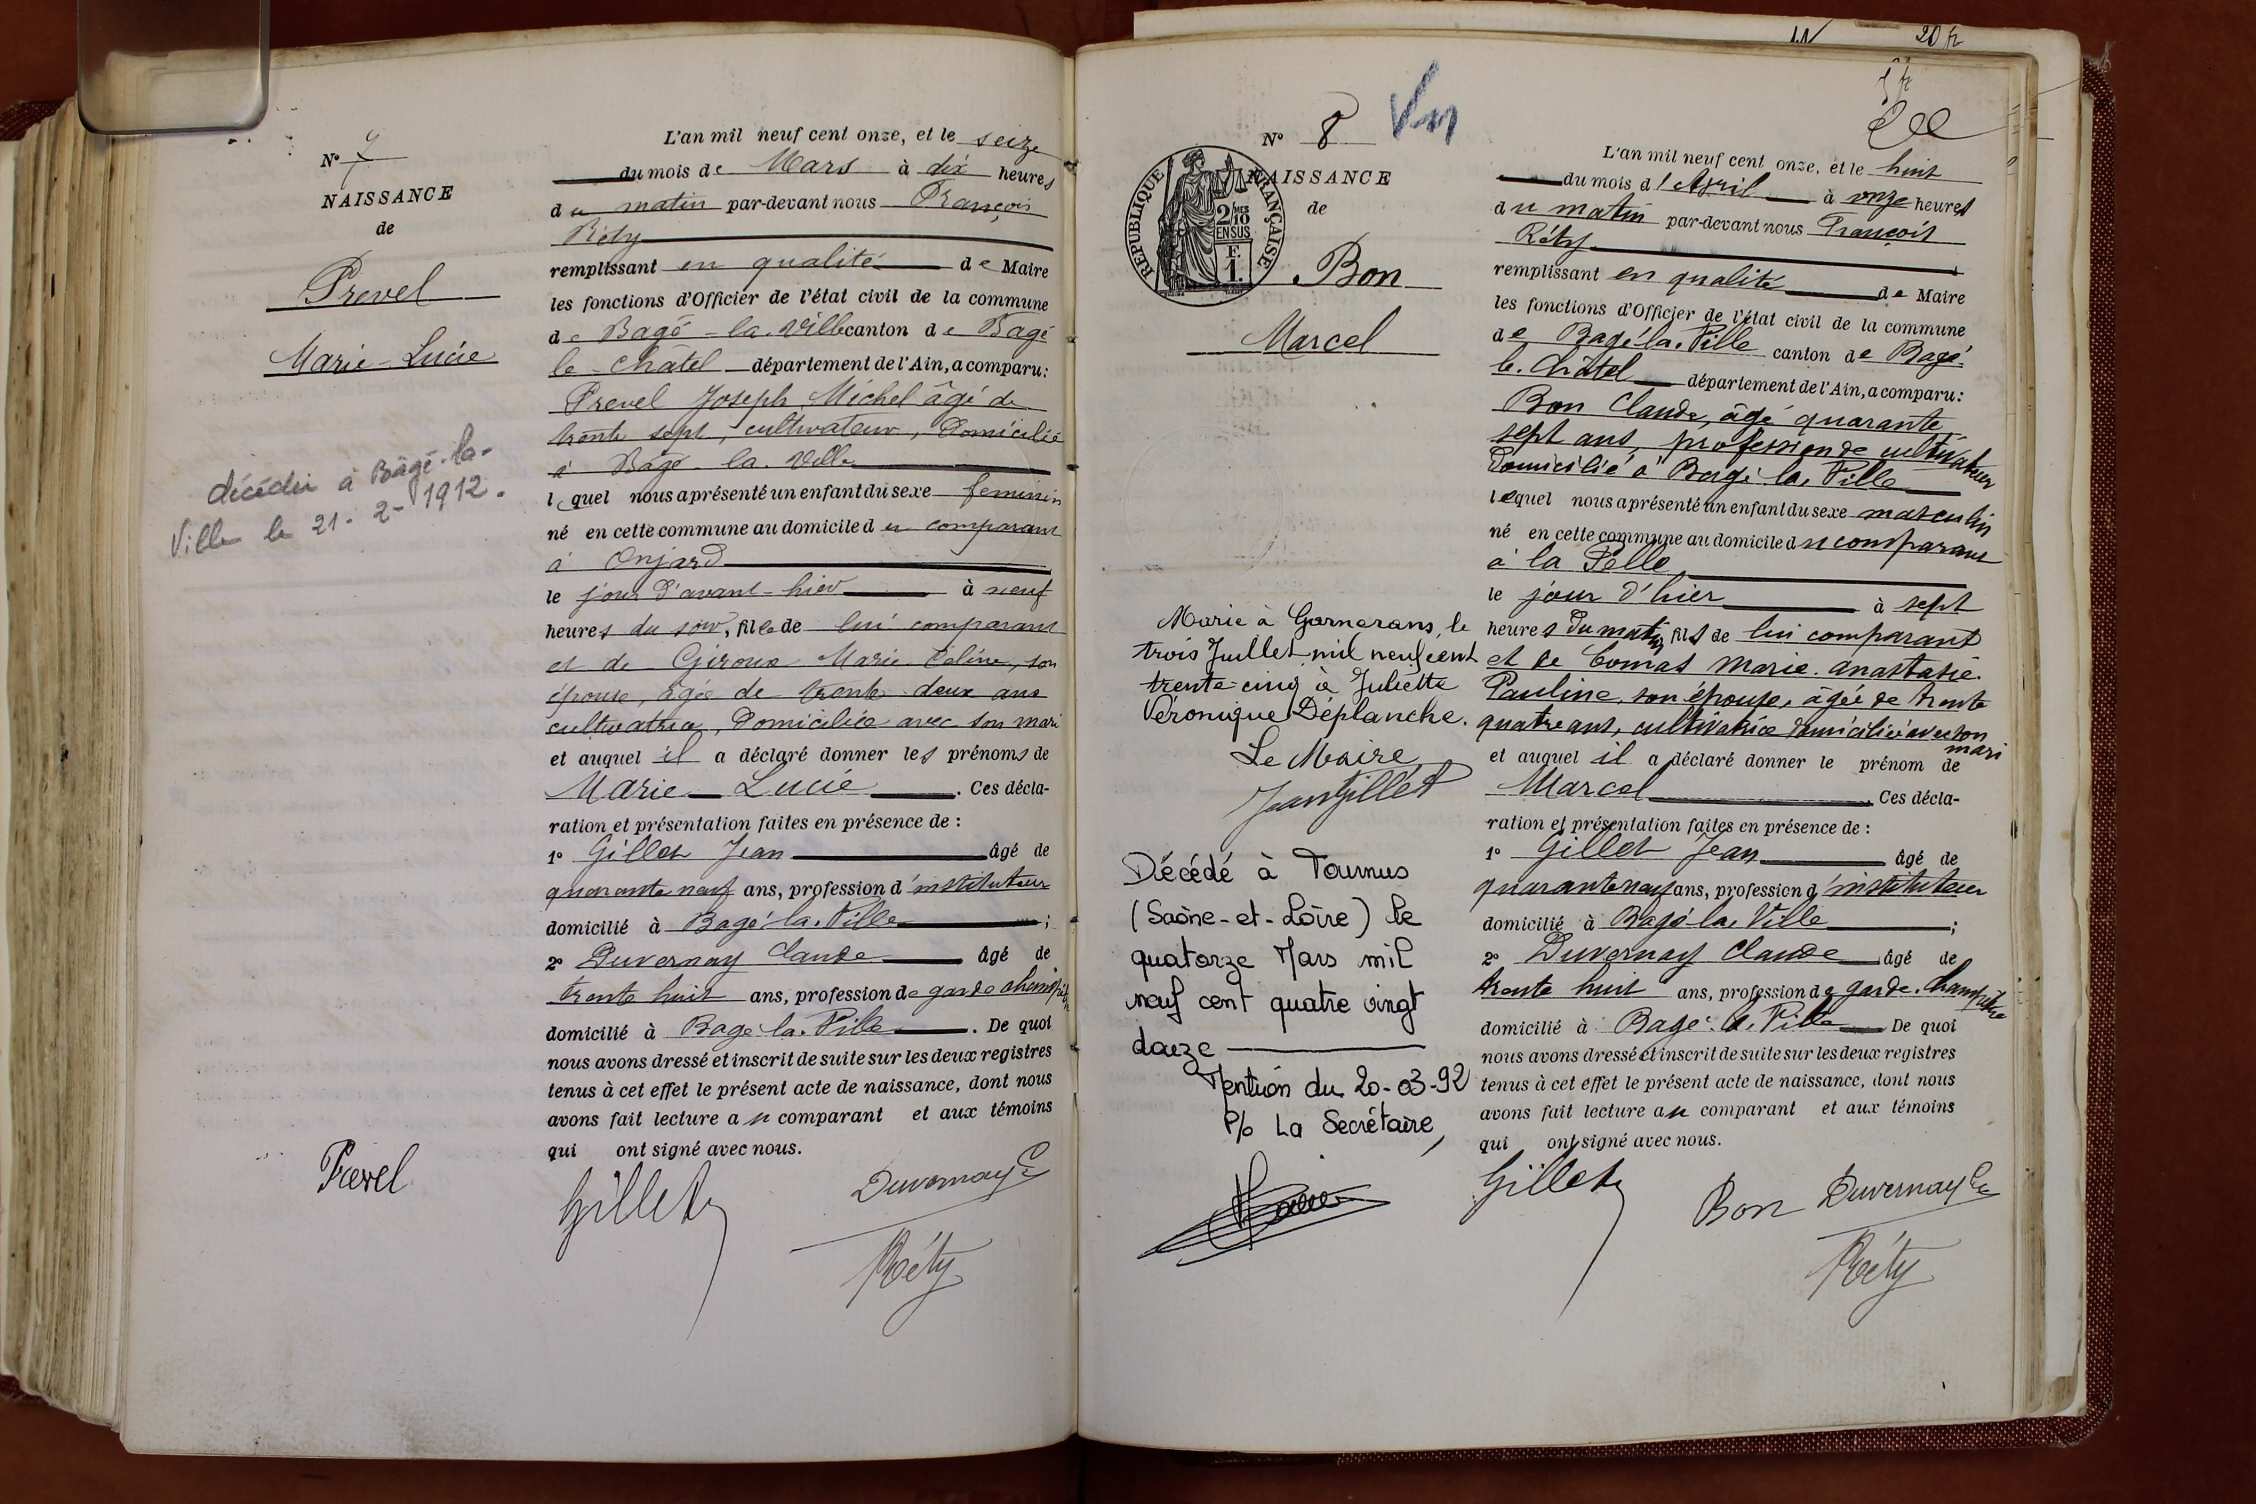 20 fr
N° 7
NAISSANCE
de
Prevel
Marie-Lucie
décédée à Bâgé-la-
Ville le 21-2-1912.
L'an mil neuf cent onze, et le seize
du mois de Mars à dix heures
du matin par-devant nous François
Réty
remplissant en qualité de Maire
les fonctions d'Officier de l'état civil de la commune
de Bagé-la-Ville canton de Bagé
le-Châtel département de l'Ain, a comparu:
Prevel Joseph Michel âgé de
trente sept, cultivateur, domicilié
à Bâgé-la-Ville
lequel nous a présenté un enfant du sexe feminin
né en cette commune au domicile du comparant
à Onjard
le jour d'avant-hier à neuf
heures du soir, fille de lui comparant
et de Giroux Marie Céline, son
épouse, âgée de trente deux ans
cultivatrice, domiciliée avec son mari
et auquel il a déclaré donner les prénoms de
Marie Lucie. Ces décla-
ration et présentation faites en présence de :
1° Gillet Jean âgé de
quarante neuf ans, profession d'instituteur
domicilié à Bagé-la-Ville ;
2° Duvernay Claude âgé de
trente huit ans, profession de garde champêtre
domicilié à Bagé-la-Ville. De quoi
nous avons dressé et inscrit de suite sur les deux registres
tenus à cet effet le présent acte de naissance, dont nous
avons fait lecture au comparant et aux témoins
qui ont signé avec nous.
Prevel
Gillet
Duvernay C
Réty
N° 8
NAISSANCE
de
RÉPUBLIQUE FRANÇAISE
2/10 MES
EN SUS
F.
1.
Bon
Marcel
Marié à Garnerans, le
trois Juillet mil neuf cent
trente-cinq à Juliette
Véronique Déplanche.
Le Maire
Jean Gillet
Décédé à Tournus
(Saône-et-Loire) le
quatorze Mars mil
neuf cent quatre vingt
douze
Mention du 20-03-92
P/o La Secrétaire,
5 fr
L'an mil neuf cent onze, et le huit
du mois d'Avril à onze heures
du matin par-devant nous François
Réty
remplissant en qualité de Maire
les fonctions d'Officier de l'état civil de la commune
de Bagé-la-Ville canton de Bagé
le-Châtel département de l'Ain, a comparu:
Bon Claude, âgé quarante
sept ans, profession de cultivateur
domicilié à Bagé la Ville
lequel nous a présenté un enfant du sexe masculin
né en cette commune au domicile du comparant
à la Pelle
le jour d'hier à sept
heures du matin, fils de lui comparant
et de Comas Marie-Anastasie
Pauline, son épouse, âgée de trente
quatre ans, cultivatrice domiciliée avec son
mari
et auquel il a déclaré donner le prénom de
Marcel. Ces décla-
ration et présentation faites en présence de :
1° Gillet Jean âgé de
quarante neuf ans, profession d'instituteur
domicilié à Bagé-la-Ville ;
2° Duvernay Claude âgé de
trente huit ans, profession de garde-champêtre
domicilié à Bagé-la-Ville De quoi
nous avons dressé et inscrit de suite sur les deux registres
tenus à cet effet le présent acte de naissance, dont nous
avons fait lecture au comparant et aux témoins
qui ont signé avec nous.
Gillet
Bon
Duvernay C
Réty